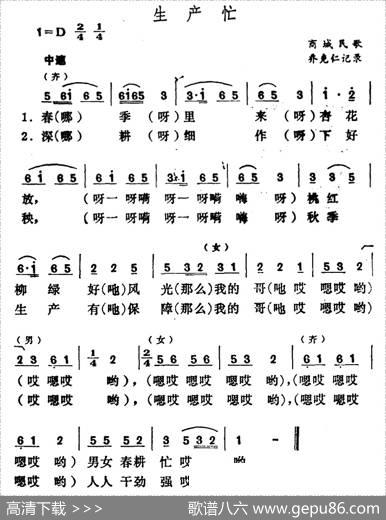 生产忙
1=D 2/4 1/4
商城民歌
中速
乔克仁记录
(齐)
5 6i 6 5 | 6i65 3 | 3·i 6 5 | 3 6 5 | i · 2 |
1. 春(哪) 季(呀)里 来(呀)杏花
2. 深(哪) 耕(呀)细 作(呀)下好
放, (呀一呀嗬一呀嗬 嗨 呀) 桃红
秧, (呀一呀嗬一呀嗬 嗨 呀) 秋季
(女)
6·i 6 5 | 2 2 5 | 5 52 3 1 |
柳绿 好(吔)风 光(那么)我的哥(吔哎 嗯哎 哟)
生产 有(吔)保 障(那么)我的哥(吔哎 嗯哎 哟)
(男) (女) (齐)
2 3 6 1 | 1/4 2 | 2/4 5 6 5 6 | 5 6 1 |
(哎 嗯哎 哟), (嗯哎嗯哎 嗯哎哟),(嗯哎嗯哎
(哎 嗯哎 哟), (嗯哎嗯哎 嗯哎哟),(嗯哎嗯哎
6 1 2 | 5 5 5 2 | 3 532 | 1 - ‖
嗯哎 哟) 男女春耕 忙 哎 哟
嗯哎 哟) 人人干劲 强 哎
高清下载 >>>
歌谱八六 www.gepu86.com